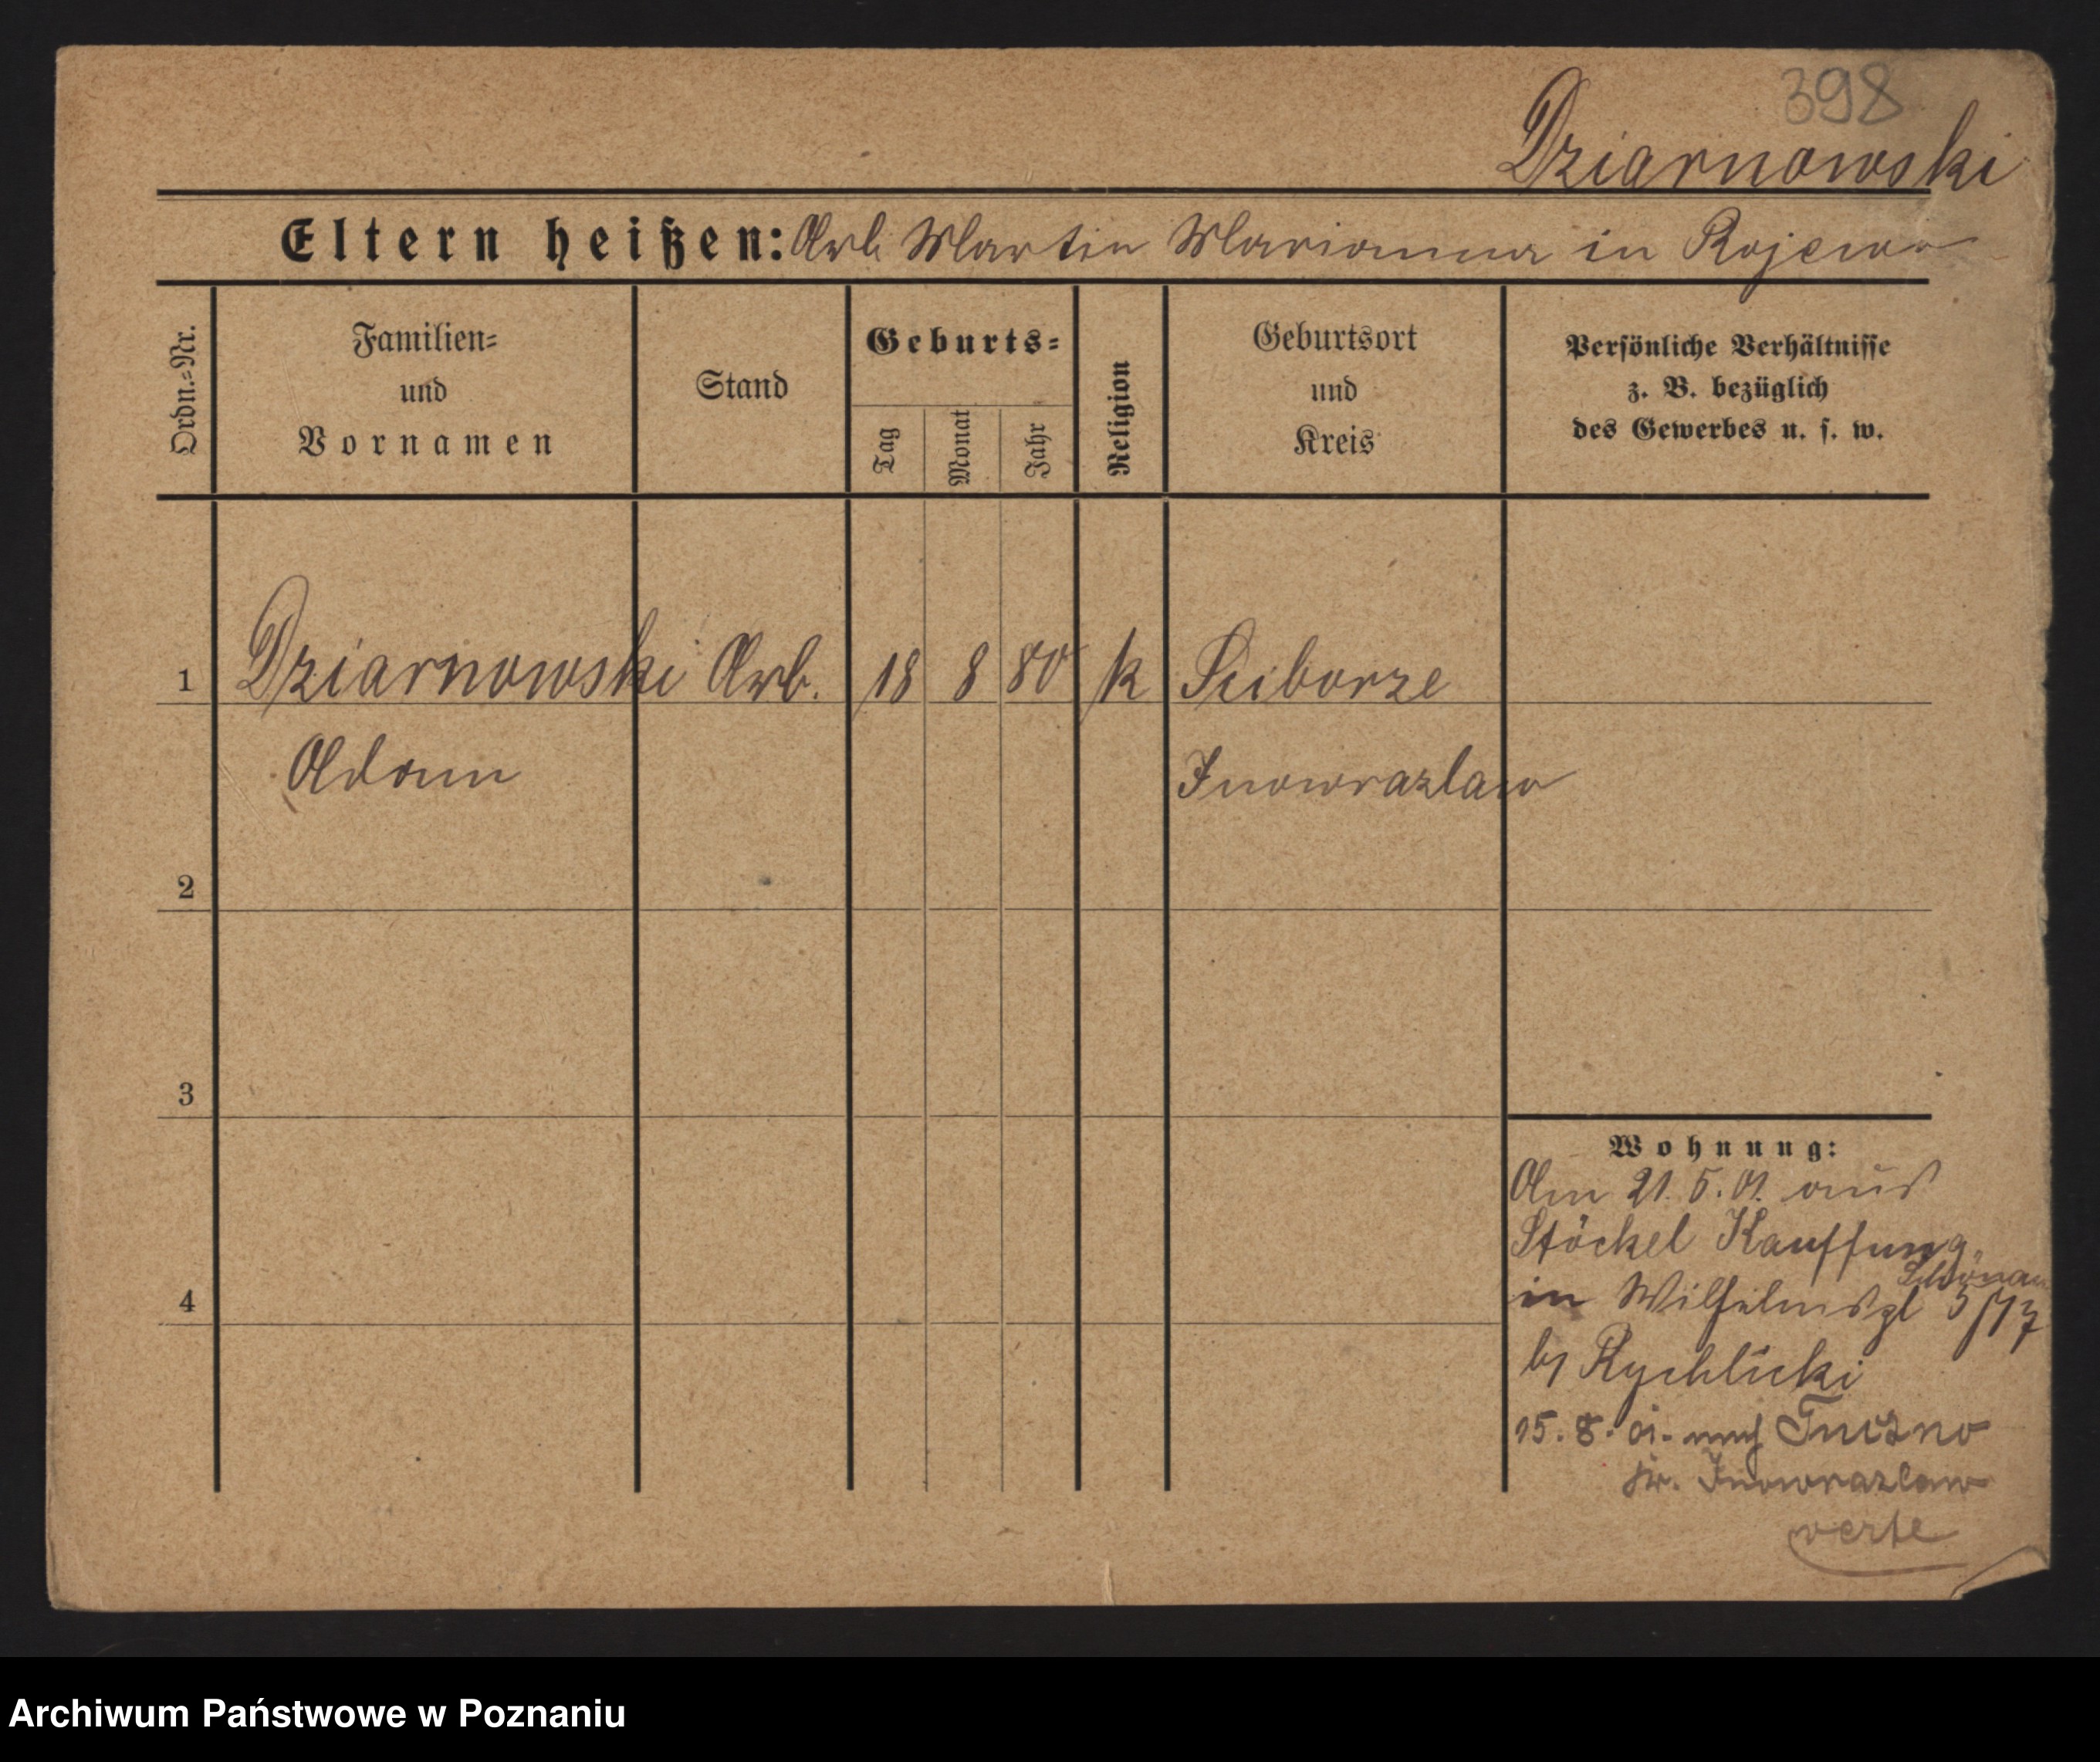 398
Dziarnowski
Eltern heißen: Arb. Martin Marianna in Rojewo
Ordn.=Nr.
Familien=
und
Vornamen
Stand
Geburts=
Tag
Monat
Jahr
Religion
Geburtsort
und
Kreis
Persönliche Verhältnisse
z. B. bezüglich
des Gewerbes u. s. w.
1 Dziarnowski Arb. 18 8 80 k Sciborze
Adam Inowrazlaw
2
3
4
Wohnung:
Am 21. 5. 01. aus
Stöckel Kauffung,
Schönau
in Wilhelmspl
by Rychlicki
15. 8. 01. nach Tuczno
Kr. Inowrazlaw
verte
Archiwum Państwowe w Poznaniu